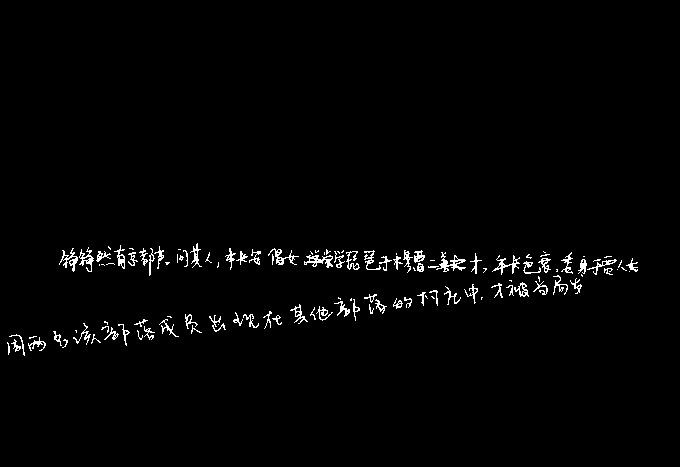 铮铮然有京都声问其人,本长安倡女 尝学琵琶于穆曹二善才,年长色衰,委身于贾人
因两名该部落成员出现在其他部落的村庄中,才被当局发